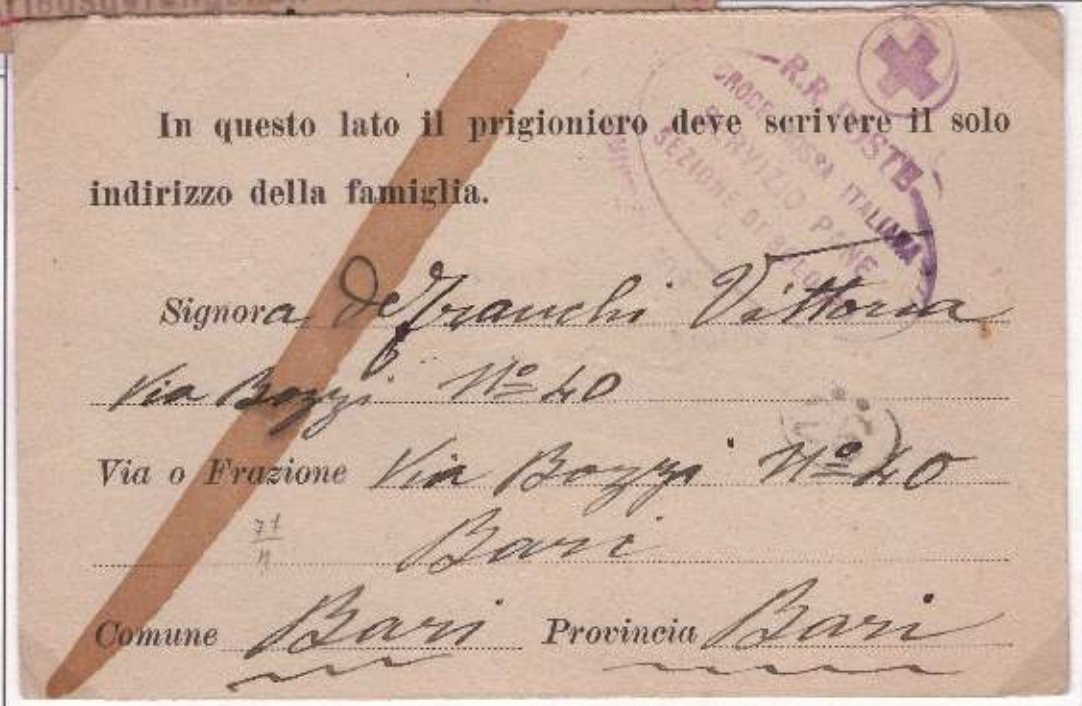 In questo lato il prigioniero deve scrivere il solo
indirizzo della famiglia.
R.R. POSTE
CROCE ROSSA ITALIANA
SERVIZIO PANE
SEZIONE DI
Signora deFranchi Vittoria
Via Bozzi Nº 40
Via o Frazione Via Bozzi Nº 40
Bari
Comune Bari Provincia Bari